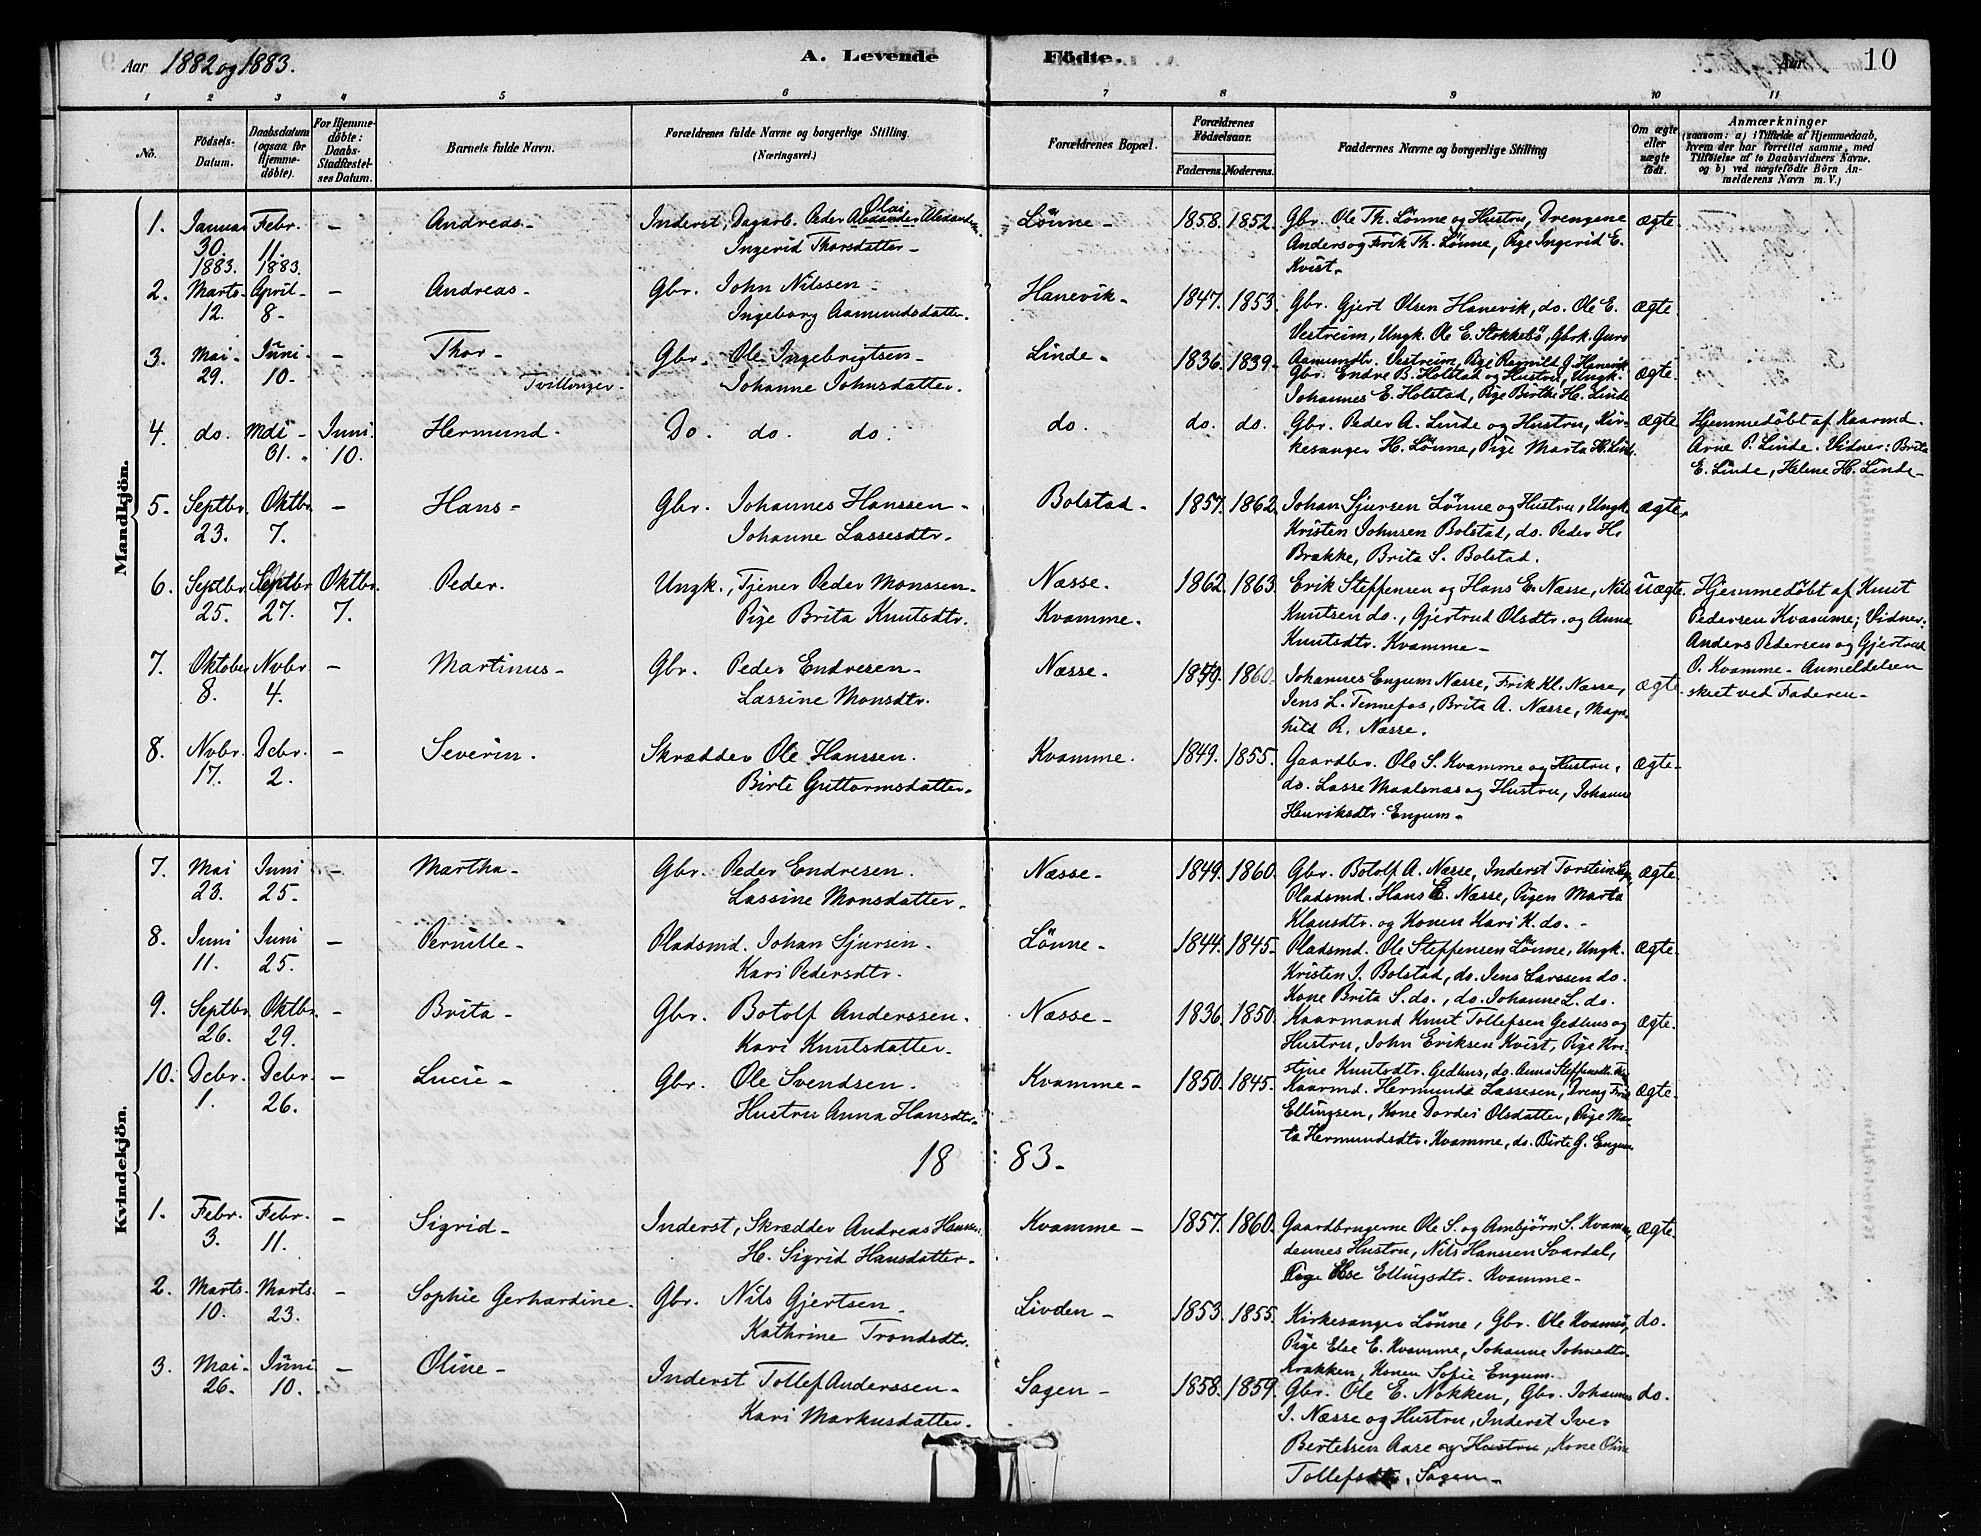 Aar 1882 og 1883. A. Levende Födte. Aar 10
1 2 3 4 5 6 7 8 9 10 11
No. Födsels-Datum. Daabsdatum (ogsaa for Hjemme-döbte). For Hjemme-döbte: Daabs-Stadfæstel-ses Datum. Barnets fulde Navn. Forældrenes fulde Navne og borgerlige Stilling (Næringsvei.) Forældrenes Bopæl. Forældrenes Födselsaar. Faderens. Moderens. Faddernes Navne og borgerlige Stilling Om ægte eller uægte födt. Anmærkninger (saasom: a) i Tilfælde af Hjemmedaab, hvem der har forrettet samme, med Tilföielse af to Daabsvidners Navne. og b) ved uægtefödte Börn An-melderens Navn m. V.)
Mandkjön.
1. Januar Febr. – Andreas – Inderst, Dagarb. Peder Olai Alexander Lönne – 1858. 1852. Gbr. Ole Th. Lönne og Hustru, Drengene ægte
30. 11. Ingerid Thorsdatter – Anders og Erik Th. Lönne, Pige Ingerid E.
1883. 1883. Kvist.
2. Marts April – Andreas – Gbr. John Nilssen – Hanevik – 1847. 1853. Gbr. Gjert Olsen Hanevik, do. Ole E. ægte.
12. 8 – Ingeborg Aamundsdatter. Vestreim, Ungk. Ole E. Stokkebö, Gbrk. Guro
3. Mai – Juni – – Thor – Gbr. Ole Ingebrigtsen – Linde – 1836. 1839. Aamundtr. Vestreim, Pige Ragnild G. Hanevik
29. 10. Tvillinger. Johanne Johnsdatter. Gbr. Endre B. Holstad og Hustru, Ungk. ægte.
Johannes E. Holstad, Pige Birthe H. Linde
4. do. Mai – Juni Hermund – Do. do. do. do. do. do. Gbr. Peder A. Linde og Hustru, Kir- ægte Hjemmedöbt af Kaarmd.
31. 10. kesanger H. Lönne, Pige Marta H. Linde. Arne P. Linde. Vidner: Brita
E. Linde, Helene H. Linde –
5. Septbr. Oktbr. – Hans – Gbr. Johannes Hanssen – Bolstad – 1857. 1862. Johan Sjursen Lönne og Hustru, Ungk. ægte.
23. 7. Johanne Lassesdtr. Kristen Johnsen Bolstad, do. Peder H.
Brakke, Brita S. Bolstad.
6. Septbr. Septbr. Oktbr. Peder. Ungk., Tjener Peder Monssen – Næsse. 1862. 1863. Erik Steffensen og Hans E. Næsse, Nils uægte. Hjemmedöbt af Knut
25. 27. 7. Pige Brita Knutsdtr. Kvamme. Knutsen do., Gjertrud Olsdtr. og Anna Pedersen Kvamme; Vidner:
Knutsdtr. Kvamme – Anders Pedersen og Gjertrud
7. Oktober Novbr. – Martinus – Gbr. Peder Endresen – Næsse. 1860. Johannes Engum Næsse, Erik Kl. Næsse, ægte. O. Kvamme – Anmeldelsen
8. 4. Lassine Monsdtr. Jens L. Tennefos, Brita A. Næsse, Magn- skeet ved Faderen –
hild R. Næsse.
8. Novbr. Debr. – Severin. Skrædder Ole Hanssen. Kvamme. 1849. 1855. Gaardbr. Ole S. Kvamme og Hustru, ægte –
17. 2. Birte Guttormsdatter. do. Lasse Maalsnæs og Hustru, Johanne
Henriksdtr. Engum.
Kvindekjön.
7. Mai Juni – Martha – Gbr. Peder Endresen. Næsse – 1849. 1860. Gbr. Botolf A. Næsse, Inderst Torstein ægte.
23. 25. Lassine Monsdatter. Pladsmd. Hans E. Næsse, Pigen Marta
Klausdtr. og Konen Kari K. do. –
8. Juni Juni – Pernille – Pladsmd. Johan Sjursen. Lönne – 1844. 1845. Pladsmd. Ole Steffensen Lönne, Ungk. ægte.
11. 25. Kari Pedersdtr. Kristen J. Bolstad, do. Jens Larssen do.
Kone Brita S. do., do. Johanne L. do.
9. Septbr. Oktbr. – Brita – Gbr. Botolf Anderssen. Næsse – 1836. 1850. Kaarmand Knut Tollefsen Gedhus og ægte.
26. 29. Kari Knutsdatter. Hustru, John Eriksen Kvist, Pige Kri-
10. Debr. Debr. – Lucie – Gbr. Ole Svendsen. Kvamme – 1850. 1845. stine Knutsdtr. Gedhus, do. Anna Steffensdtr.
1. 26. Hustru Anna Hansdtr. Kaarmd. Hermund Lassesen, Dreng Erik ægte.
Ellingsen, Kone Dordei Olsdatter, Pige Mar-
ta Hermundsdtr. Kvamme, do. Birte G. Engum
18 83 –
1. Febr. Febr. – Sigrid – Inderst, Skrædder Andreas Hanssen Kvamme – 1857. 1860. Gaardbrugerne Ole S. og Ambjörn S. Kvamme, ægte
3. 11. H. Sigrid Hansdatter. dennes Hustru, Nils Hanssen Svardal,
Pige Else Ellingsdtr. Kvamme –
2. Marts. Marts. – Sophie Gerhardine. Gbr. Nils Gjertsen. Livden – 1853. 1855. Kirkesanger Lönne, Gbr. Ole Kvamme, do.
10. 23. Kathrine Trondsdtr. Pige Else E. Kvamme, Johanne Johnsdtr.
Brakken, Konen Sofie Engum.
3. Mai – Juni – Oline – Inderst Tollef Anderssen – Sagen – 1858. 1859. Gbr. Ole E. Nokken, Gbr. Johannes do.
26. 10. Kari Markusdatter. J. Næsse og Hustru, Inderst Iver
Bertelsen Aase og Hustru, Kone Oline
Tollefsdtr. Sagen –